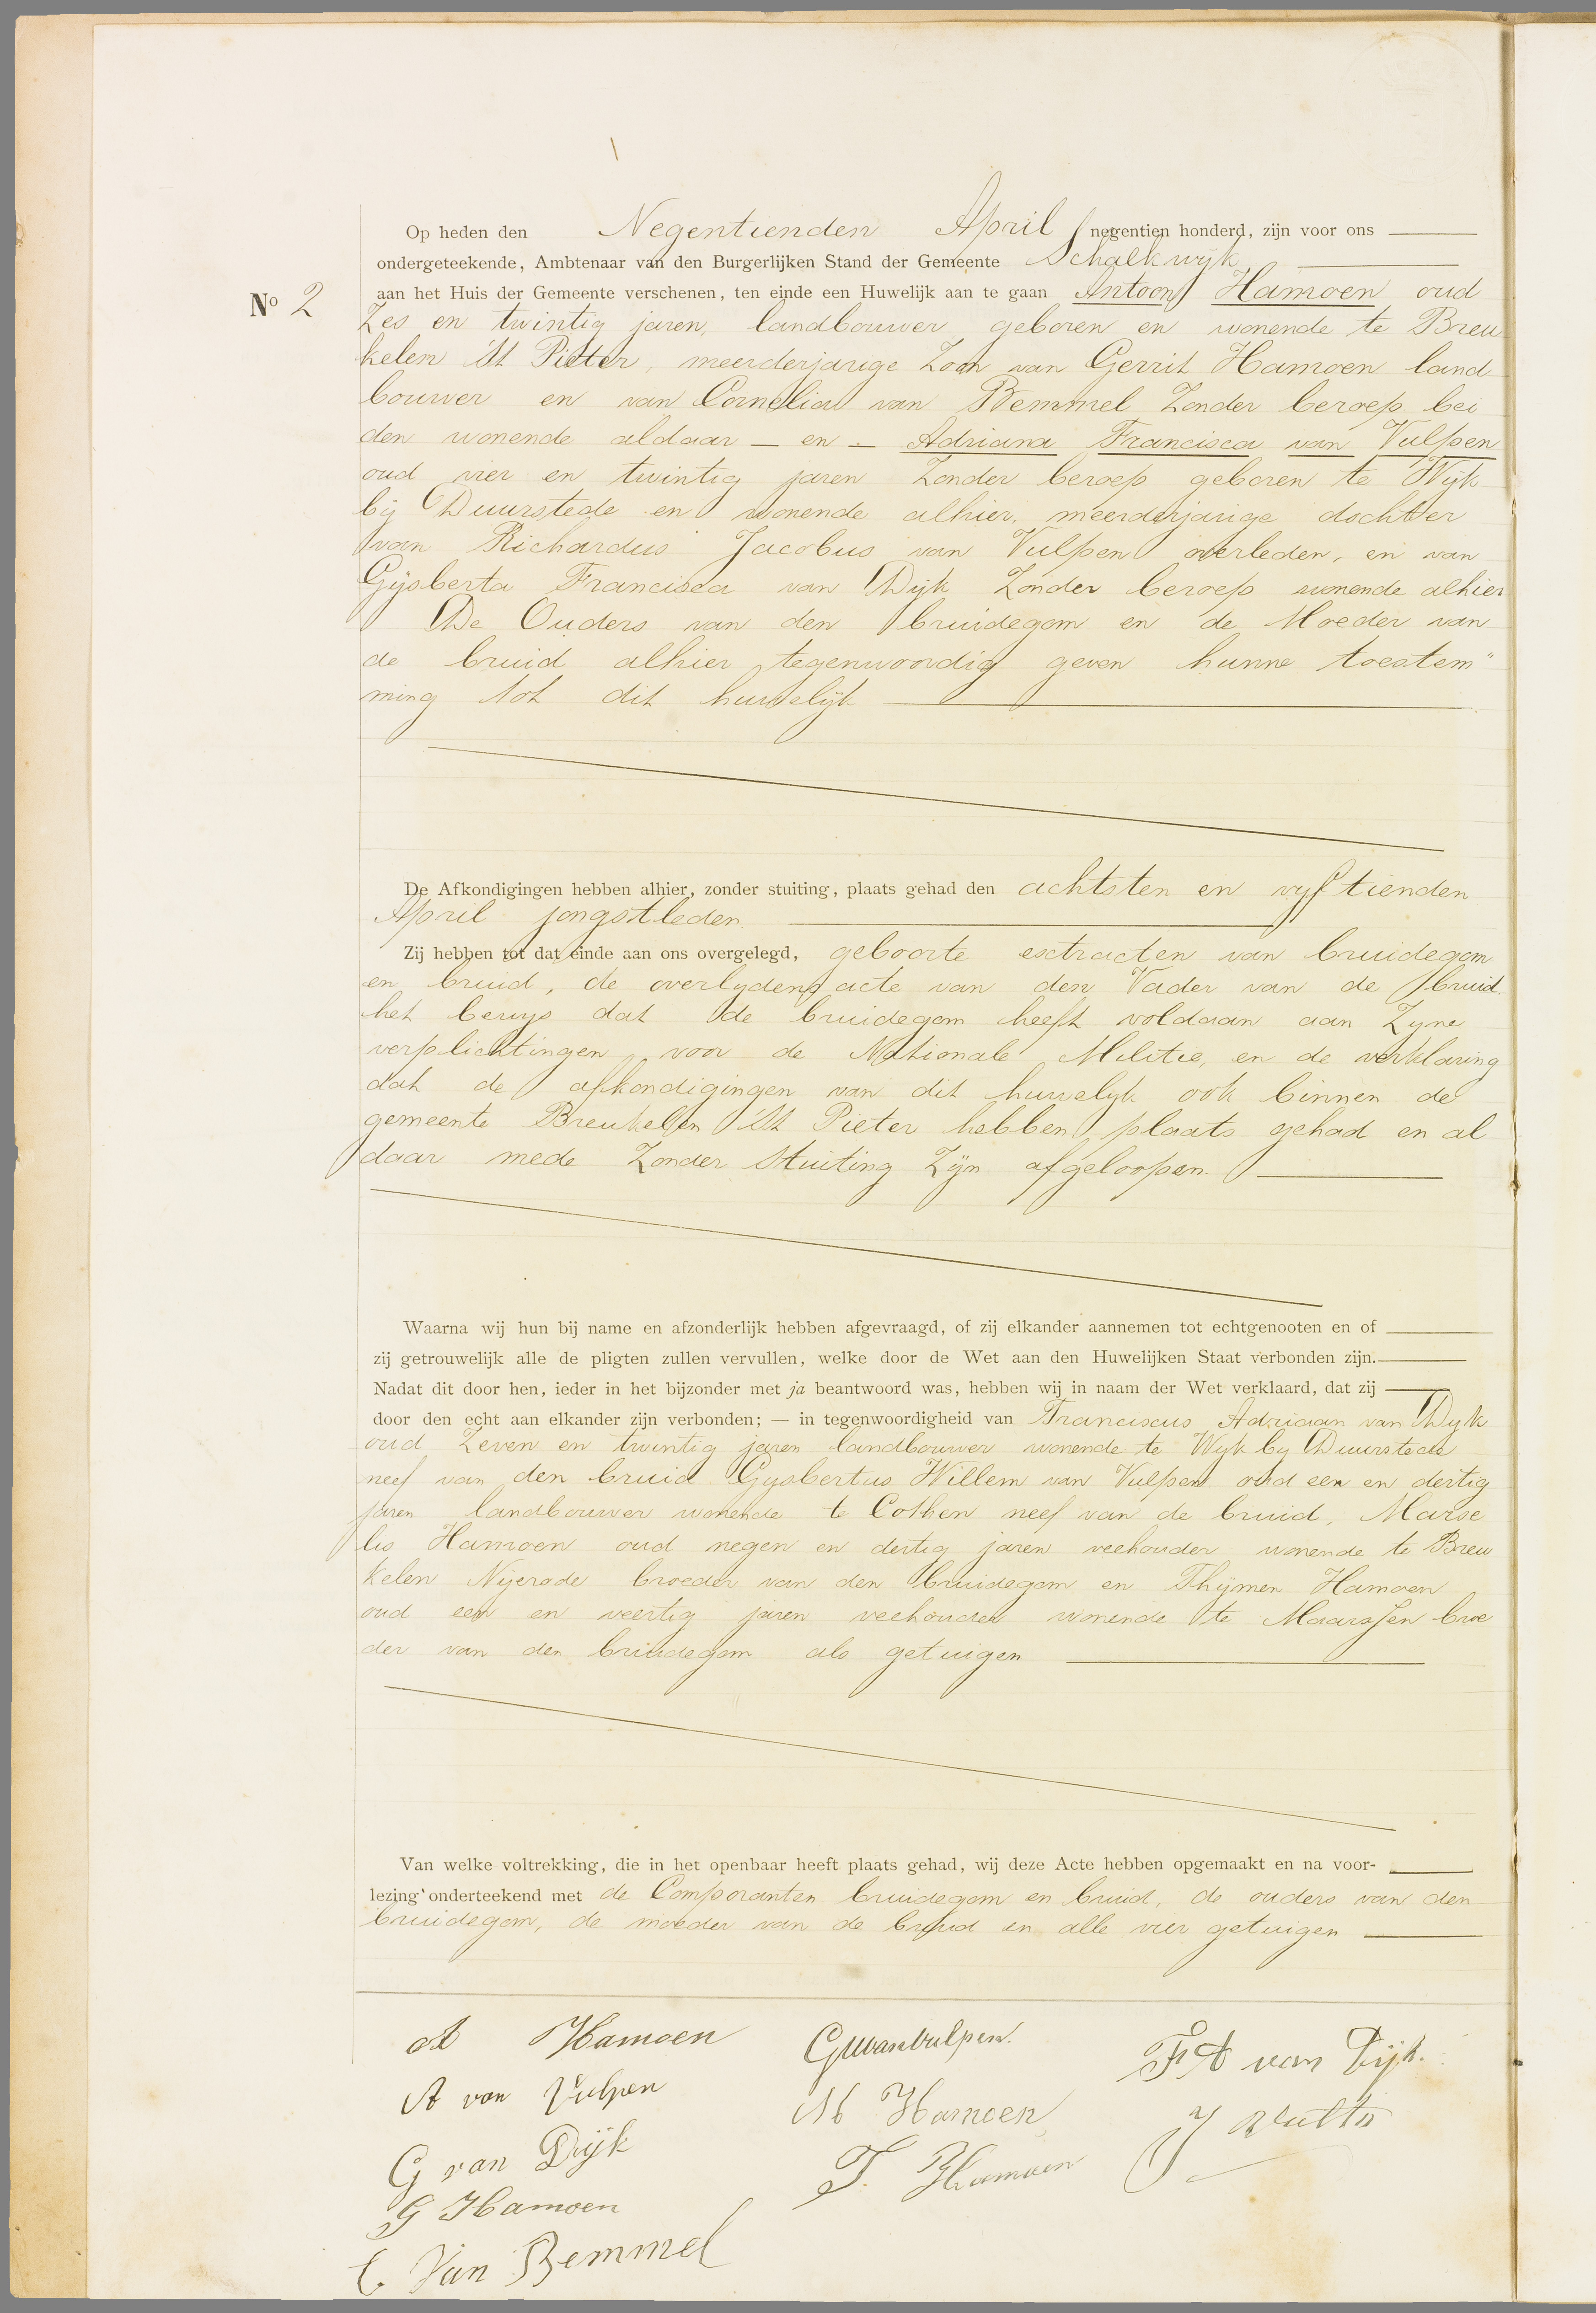 Op heden den Negentienden April negentien honderd, zijn voor ons
ondergeteekende, Ambtenaar van den Burgerlijken Stand der Gemeente Schalkwijk
No 2
aan het Huis der Gemeente verschenen, ten einde een Huwelijk aan te gaan Antoon Hamoen oud
Zes en twintig jaren, landbouwer geboren en wonende te Breu
kelen St Pieter, meerderjarige Zoon van Gerrit Hamoen land
bouwer en van Cornelia van Bemmel Zonder beroep bei
den wonende aldaar — en — Adriana Francisca van Vulpen
oud vier en twintig jaren Zonder beroep geboren te Wijk
bij Duurstede en wonende alhier, meerderjarige dochter
van Richardus Jacobus van Vulpen overleden, en van
Gijsberta Francisca van Dijk Zonder beroep wonende alhier
De Ouders van den bruidegom en de Moeder van
de bruid alhier tegenwoordig geven hunne toestem"
ming tot dit huwelijk
De Afkondigingen hebben alhier, zonder stuiting, plaats gehad den achtsten en vyftienden
April jongstleden
Zij hebben tot dat einde aan ons overgelegd, geboorte extracten van bruidegom
en bruid, de overlydens acte van den Vader van de bruid.
het bewys dat de bruidegom heeft voldaan aan Zyne
verplichtingen voor de Nationale Militie, en de verklaring
dat de afkondigingen van dit huwelyk ook binnen de
gemeente Breukelen St Pieter hebben plaats gehad en al
daar mede Zonder Stuiting Zijn afgeloopen.
Waarna wij hun bij name en afzonderlijk hebben afgevraagd, of zij elkander aannemen tot echtgenooten en of
zij getrouwelijk alle de pligten zullen vervullen, welke door de Wet aan den Huwelijken Staat verbonden zijn.
Nadat dit door hen, ieder in het bijzonder met ja beantwoord was, hebben wij in naam der Wet verklaard, dat zij
door den echt aan elkander zijn verbonden; — in tegenwoordigheid van Franciscus Adriaan van Dyk
oud Zeven en twintig jaren landbouwer wonende te Wyk by Duurstede
neef van den bruid Gysbertus Willem van Vulpen oud een en dertig
jaren landbouwer wonende te Cothen neef van de bruid, Marse
lis Hamoen oud negen en dertig jaren veehouder wonende te Breu
kelen Nijerode broeder van den bruidegom en Thijmen Hamoen
oud een en veertig jaren veehouder wonende te Maarssen broe
der van den bruidegom als getuigen
Van welke voltrekking, die in het openbaar heeft plaats gehad, wij deze Acte hebben opgemaakt en na voor-
lezing onderteekend met de Comparanten bruidegom en bruid, de ouders van den
bruidegom, de moeder van de bruid en alle vier getuigen
A Hamoen
A van Vulpen
G van Dijk
G Hamoen
C. Van Bemmel
GWvanVulpen.
M Hamoen
T. Hamoen
FA van Dijk.